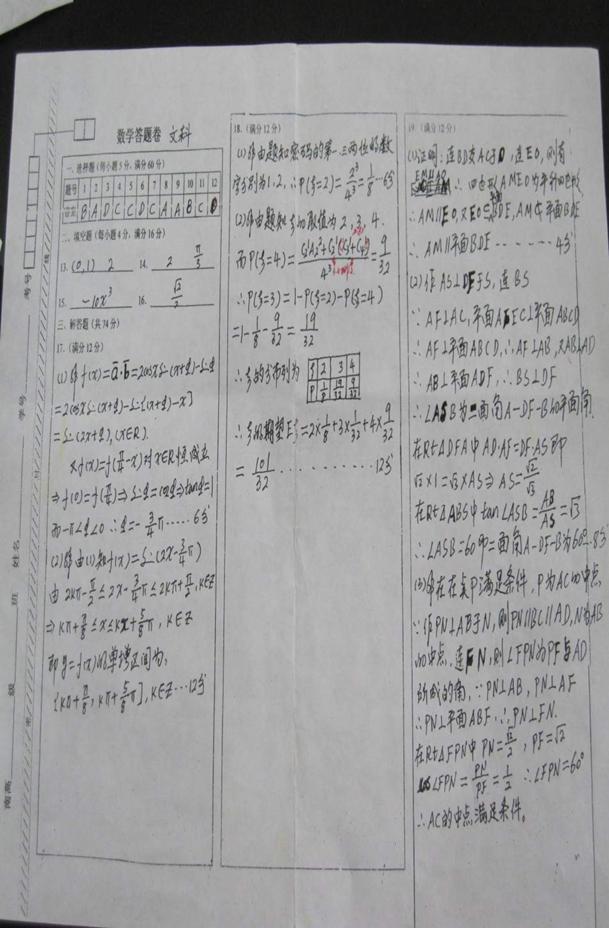 数学答题卷 文科
一、选择题（每小题5分，满分60分）
题号 1 2 3 4 5 6 7 8 9 10 11 12
B A D C C D C A A B C D
二、填空题（每小题4分，满分16分）
13. (0,1) 2 14. 2 π/3
15. -10x³ 16. √2/2
三、解答题（共74分）
17.（满分12分）
而-π<φ<0 ∴φ=-3/4π ……6分
(2)解由(1)知f(x)=sin(2x-3/4π)
由 2kπ-π/2≤2x-3/4π≤2kπ+π/2, k∈Z
⇒kπ+π/8≤x≤kπ+5/8π, k∈Z
即y=f(x)的单增区间为:
[kπ+π/8, kπ+5/8π], k∈Z…12分
考号
学号
姓名
班
级
南高
18.（满分12分）
(1)解由题知密码的第一三两位的数
字分别为1,2, ∴P(ξ=2)=2³/4³=1/8…6分
(2)解由题知ξ的取值为2, 3, 4.
∴P(ξ=3)=1-P(ξ=2)-P(ξ=4)
=1-1/8-9/32=19/32
∴ξ的分布列为
ξ 2 3 4
P 1/8 19/32 9/32
=101/32…………12分
19.（满分12分）
(1)证明:连BD交AC于O,连EO,则有
∴四边形AMEO为平行四边形
∴AM∥EO,又EO⊂面BDE, AM⊄平面BDE
∴AM∥平面BDE ……4分
(2)作AS⊥DF于S,连BS
∵AF⊥AC,平面AFEC⊥平面ABCD
∴AF⊥平面ABCD,∴AF⊥AB,又AB⊥AD
∴AB⊥平面ADF,∴BS⊥DF
∴∠ASB为二面角A-DF-B的平面角.
在Rt△DFA中AD·AF=DF·AS即
√2×1=√3×AS⇒AS=√2/√3
在Rt△ABS中tan∠ASB=AB/AS=√3
∴∠ASB=60°即二面角A-DF-B为60°…8分
(3)解存在点P满足条件,P为AC的中点
∵作PN⊥AB于N,则PN∥BC∥AD,N为AB
的中点,连FN,则∠FPN为PF与AD
所成的角,∵PN⊥AB, PN⊥AF
∴PN⊥平面ABF,∴PN⊥FN.
在Rt△FPN中PN=√2/2, PF=√2
cos∠FPN=PN/PF=1/2 ∴∠FPN=60°
∴AC的中点满足条件。